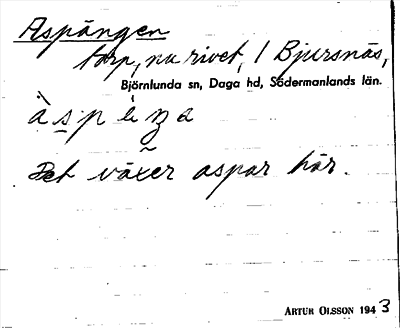 Aspängen
torp, nu rivet, / Bjursnäs,
Björnlunda sn, Daga hd, Södermanlands län.
Det växer aspar här.
ARTUR OLSSON 1943